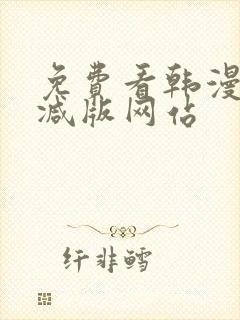 免費看韩漫
减版网佔
纤非鳕